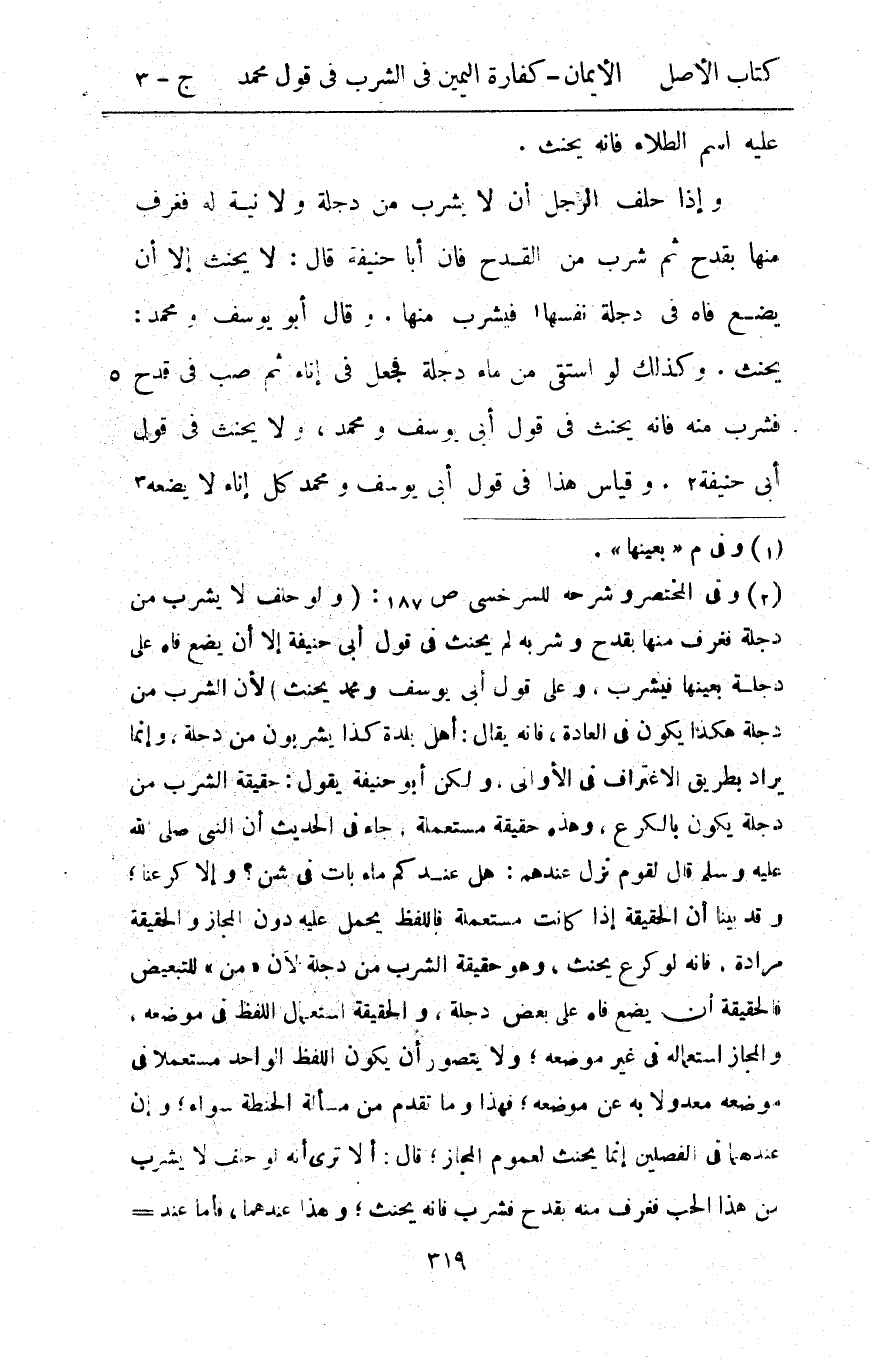 كتاب الأصل الأيمان - كفارة اليمين فى الشرب فى قول محمد ج - ٣
عليه اسم الطلاء فانه يحنث .
و إذا حلف الرجل أن لا يشرب من دجلة و لا نية له فغرف
منها بقدح ثم شرب من القدح فان أبا حنيفة قال : لا يحنث إلا أن
يضع فاه فى دجلة نفسها١ فيشرب منها . و قال أبو يوسف و محمد :
يحنث . وكذلك لو استقى من ماء دجلة فجعل فى إناء ثم صب فى قدح ٥
فشرب منه فانه يحنث فى قول أبى يوسف و محمد ، و لا يحنث فى قول
أبى حنيفة٢ . و قياس هذا فى قول أبى يوسف و محمد كل إناء لا يضعه٣
(١) و فى م « بعينها » .
(٢) و فى المختصر و شرحه للسرخسى ص ١٨٧ : ( و لو حلف لا يشرب من
دجلة فغرف منها بقدح و شربه لم يحنث فى قول أبى حنيفة إلا أن يضع فاه على
دجلة بعينها فيشرب ، و على قول أبى يوسف و محمد يحنث ) لأن الشرب من
دجلة هكذا يكون فى العادة ، فانه يقال : أهل بلدة كذا يشربون من دجلة ، و إنما
يراد بطريق الاغتراف فى الأوانى ، و لكن أبو حنيفة يقول : حقيقة الشرب من
دجلة يكون بالكرع ، وهذه حقيقة مستعملة ، جاء فى الحديث أن النبى صلى الله
عليه و سلم قال لقوم نزل عندهم : هل عندكم ماء بات فى شن ؟ و إلا كرعنا ؛
و قد بينا أن الحقيقة إذا كانت مستعملة فاللفظ يحمل عليه دون المجاز و الحقيقة
مرادة ، فانه لو كرع يحنث ، وهو حقيقة الشرب من دجلة لأن « من » للتبعيض
فالحقيقة أن يضع فاه على بعض دجلة ، و الحقيقة استعمال اللفظ فى موضعه ،
و المجاز استعماله فى غير موضعه ؛ ولا يتصور أن يكون اللفظ الواحد مستعملا فى
موضعه معدولا به عن موضعه ؛ فهذا و ما تقدم من مسألة الحنطة سواء ؛ و إن
عندهما فى الفصلين إنما يحنث لعموم المجاز ؛ قال : ألا ترى أنه لو حلف لا يشرب
من هذا الحب فغرف منه بقدح فشرب فانه يحنث ؛ و هذا عندهما ، فأما عند =
٣١٩